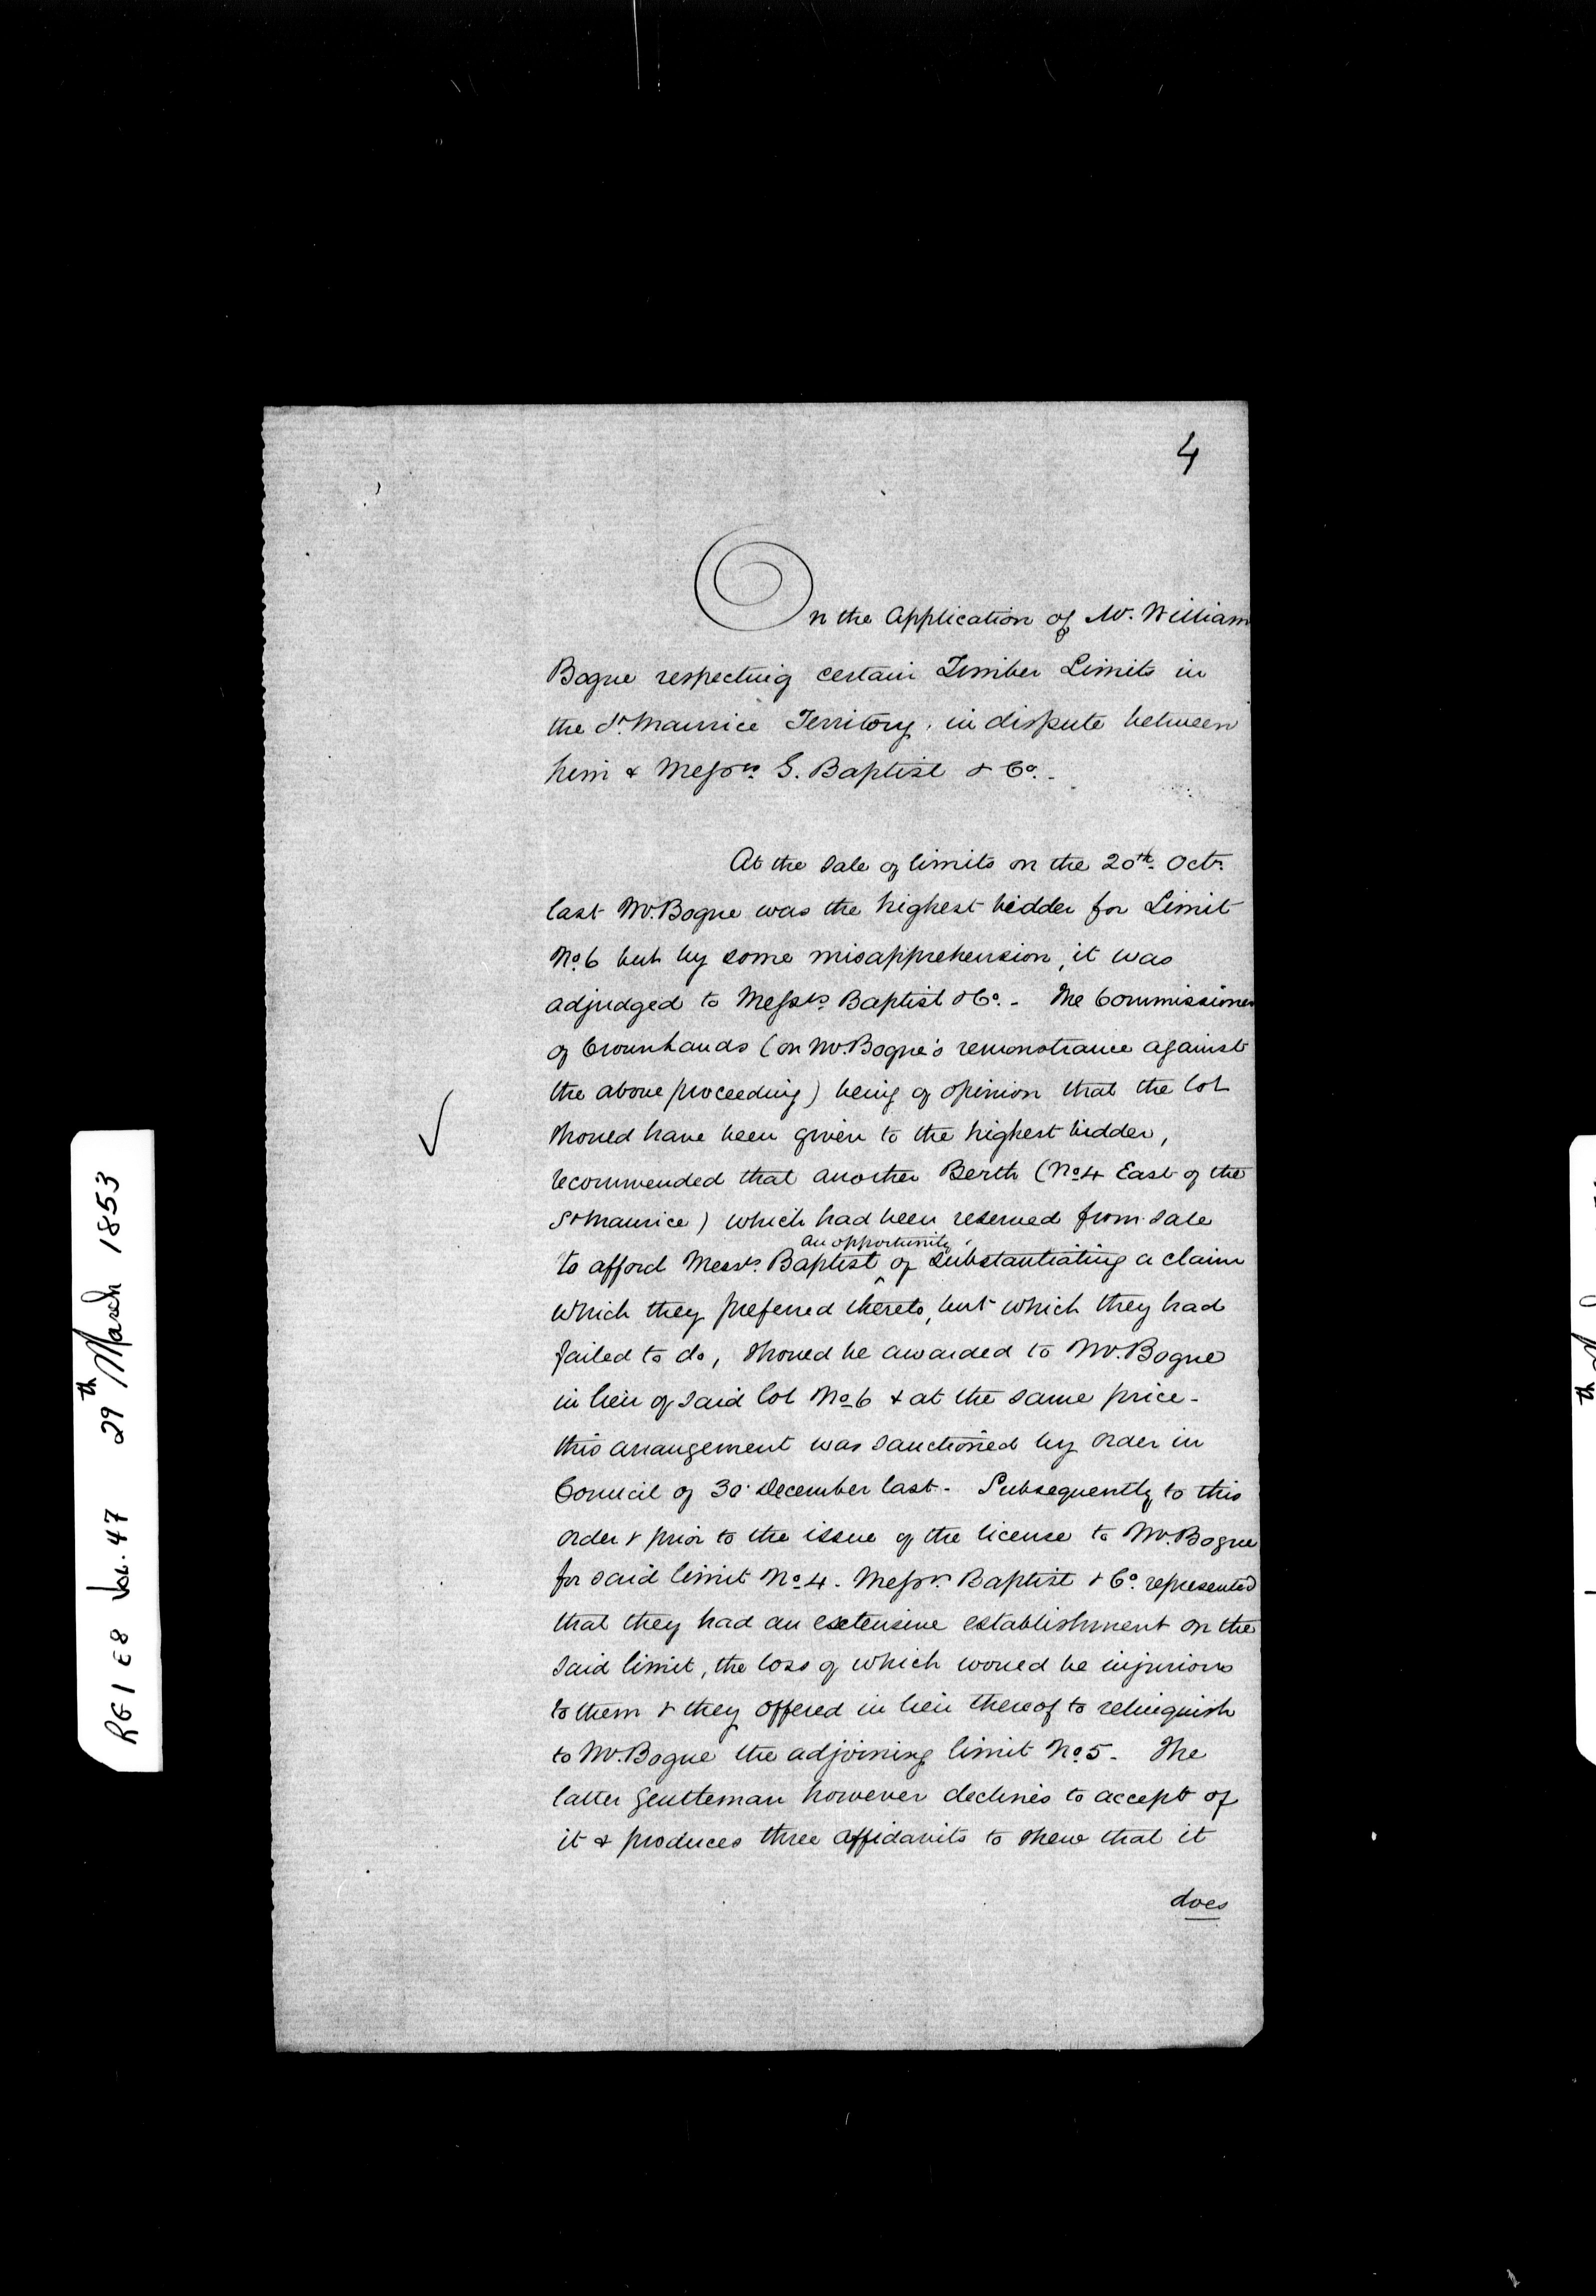 4
On the Application of Mr. William
Bogue respecting certain Timber Limits in
the St. Maurice Territory, in dispute between
him & Messrs. G. Baptist & Co. -
At the sale of limits on the 20th. Octr.
last Mr. Bogue was the highest bidder for Limit
No. 6 but by some misapprehension, it was
adjudged to Messrs. Baptist & Co. - The Commissioner
of Crown Lands (on Mr. Bogue's remonstrance against
the above proceeding) being of opinion that the lot
should have been given to the highest bidder,
recommended that another Berth (No. 4 East of the
St Maurice) which had been reserved from sale
an opportunity
to afford Messrs. Baptist ^ of substantiating a claim
which they preferred thereto, but which they had
failed to do, should be awarded to Mr. Bogue
in lieu of said lot No. 6 & at the same price -
this arrangement was sanctioned by order in
Council of 30 December last - Subsequently to this
order & prior to the issue of the license to Mr. Bogue
for said limit No. 4 - Messrs. Baptist & Co. represented
that they had an extensive establishment on the
said limit, the loss of which would be injurious
to them & they offered in lieu thereof to relinquish
to Mr. Bogue the adjoining limit No. 5 - The
latter gentleman however declines to accept of
it & produces three affidavits to shew that it
does
RG 1 E8 Vol. 47 29th March 1853